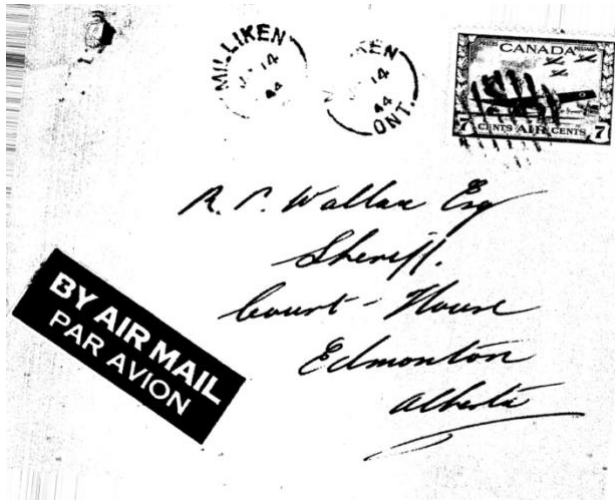 MILLIKEN
14
44
KEN
14
44
ONT.
CANADA
POSTES POSTAGE
7 CENTS AIR CENTS 7
R. P. Wallace Esq
Sheriff.
Court - House
Edmonton
Alberta
BY AIR MAIL
PAR AVION